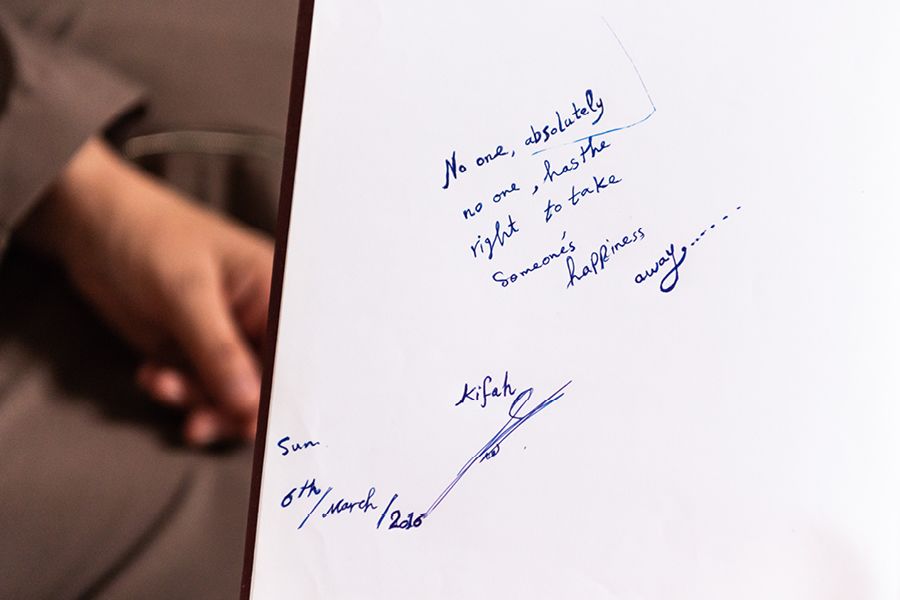 No one, absolutely
no one, has the
right to take
Someone's
happiness
away.......
Kifah
Sun.
6th/March/2016